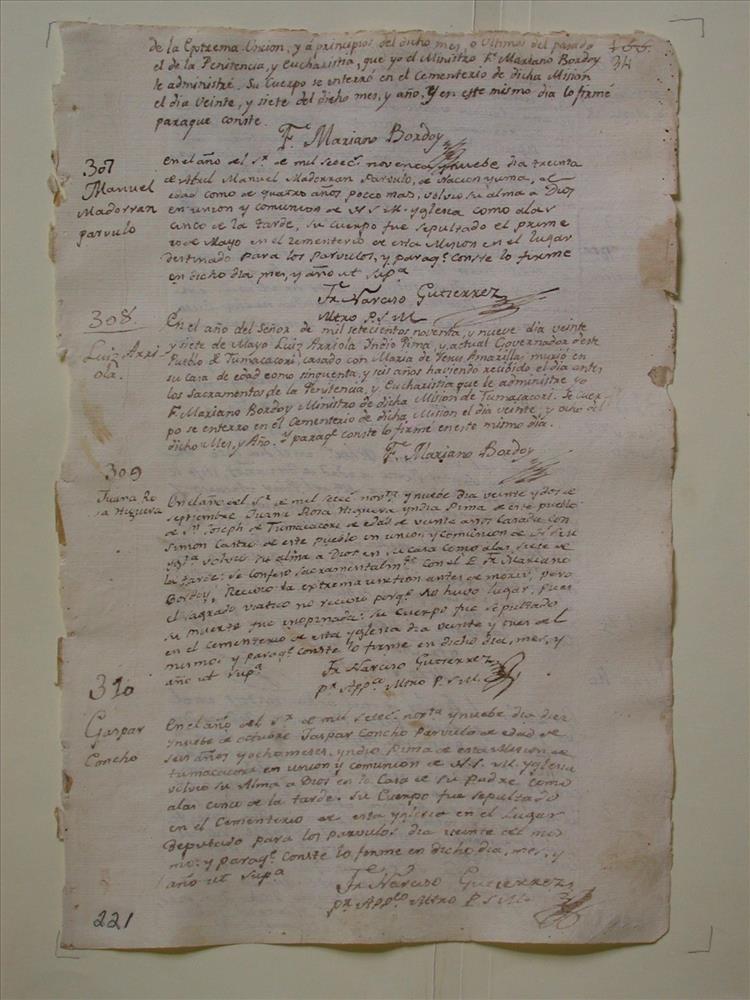 de la Extrema Uncion, y á principios del dicho mes, o ultimos del pasado
166.
34
el de la Penitencia, y Eucharistia, que yo el Ministro Fr. Mariano Bordoy
le administré. Su Cuerpo se enterró en el Cementerio de dicha Mision
el dia veinte, y siete del dicho mes, y año. Y en este mismo dia lo firmé
paraque conste.
Fr. Mariano Bordoy
307
Manuel
Madorran
parvulo
en el año del Sr. de mil setec. noventa y nuebe dia treinta
de Abril Manuel Madorran Parvulo, de Nacion yuma, de
edad como de quatro años pocco mas, volvio su alma a Dios
en union y comunion de N. S. M. yglesia como alas
cinco de la tarde, su cuerpo fue sepultado el prime
ro de Mayo en el cementerio de esta Mision en el lugar
destinado para los Parvulos, y paraqe. conste lo firme
en dicho dia mes, y año ut supa
Fr. Narciso Gutierrez
Mtro P. S. M.
308
Luiz Arri
ola.
En el año del Señor de mil setecientos noventa, y nueve dia veinte
y siete de Mayo Luiz Arriola Indio Pima, y actual Governador deste
Pueblo de Tumacacori, casado con Maria de Jesus Amarillas murió en
su casa de edad como sinquenta, y seis años haviendo recibido el dia antes
los Sacramentos de la Penitencia, y Eucharistia que le administre yo
Fr. Mariano Bordoy Ministro de dicha Mision de Tumacacori. Se Cuer
po se enterro en el Cementerio de dicha Mision el dia veinte, y ocho del
dicho Mes, y Año. Y paraqe. conste lo firmé en este mismo dia.
Fr. Mariano Bordoy
309
Juana Ro
sa Higuera
En el año del Sr. de mil setec. novta. y nuebe dia veinte y dos de
septiembre Juana Rosa Higuera yndia Pima de este pueblo
de Sn. Joseph de Tumacacori de edad de veinte años Casada con
Simon Castro de este pueblo en union y comunion de N. S. M.
ygla. volvio su alma a Dios en su casa como alas siete de
la tarde: se confeso sacramentalmte. con el P. Fr. Mariano
Bordoy, Recivio la extrema uncion antes de morir, pero
el sagrado viatico no recivio porqe. no huvo lugar, pues
su muerte fue inopinada: su cuerpo fue sepultado
en el cementerio de esta yglesia dia veinte y tres del
mismo: y paraqe. conste lo firme en dicho dia, mes, y
año ut supa
Fr. Narciso Gutierrez
pr. Appca Mtro P. S. M.
310
Gaspar
Concho
En el año del Sr. de mil setec. novta. y nuebe dia diez
y nuebe de octubre Gaspar Concho Parvulo de edad de
seis años y ocho meses, yndio Pima de esta Mision de
Tumacacori en union y comunion de N. S. M. yglesia
volvio su Alma a Dios en la Casa de su Padre, como
alas cinco de la tarde. su Cuerpo fue sepultado
en el Cementerio de esta yglesia en el Lugar
deputado para los parvulos dia veinte del mis
mo: y paraqe. conste lo firme en dicho dia, mes, y
año ut supa
Fr. Narciso Gutierrez
pr. Appco Mtro P. S. M.
221